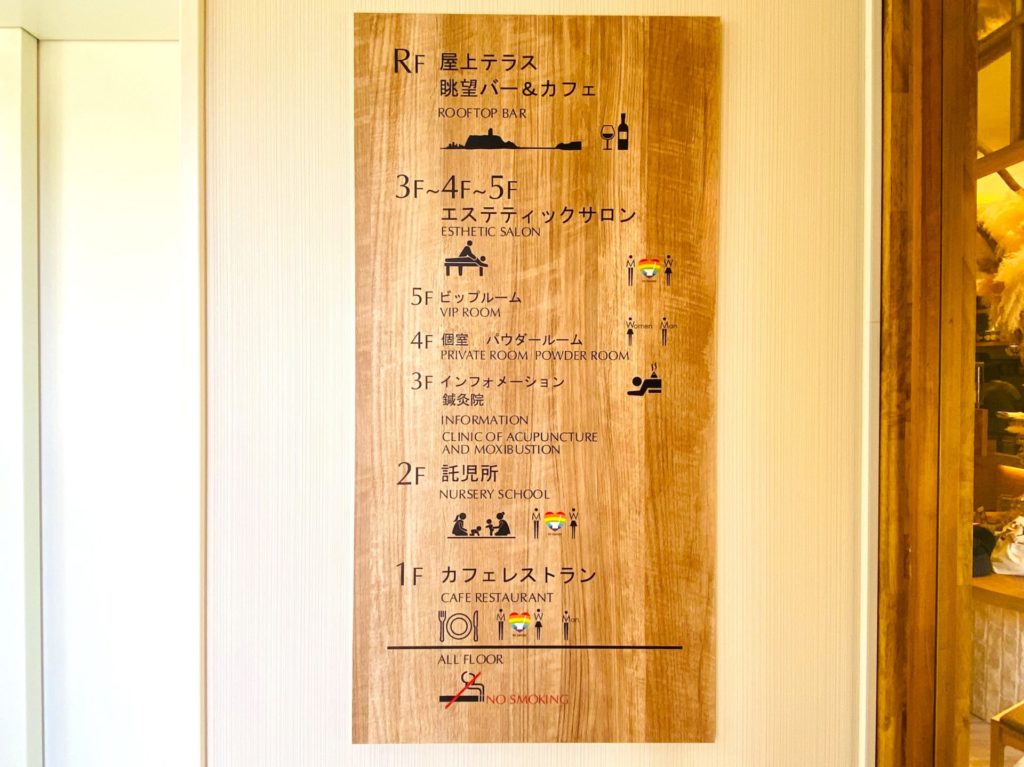 RF 屋上テラス
眺望バー&カフェ
ROOFTOP BAR
3F~4F~5F
エステティックサロン
ESTHETIC SALON
M W
5F ビップルーム
VIP ROOM
Woman Man
4F 個室 パウダールーム
PRIVATE ROOM POWDER ROOM
3F インフォメーション
鍼灸院
INFORMATION
CLINIC OF ACUPUNCTURE
AND MOXIBUSTION
2F 託児所
NURSERY SCHOOL
M W
1F カフェレストラン
CAFE RESTAURANT
M W Man
ALL FLOOR
NO SMOKING